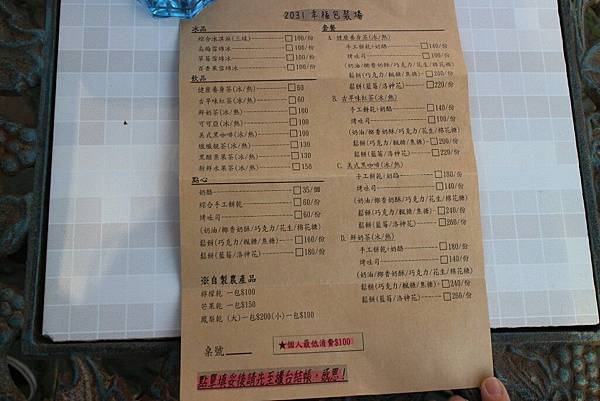 2031幸福包裝場
冰品
綜合冰淇淋(三球)---□100/份
烏梅雪綿冰---□100/份
草莓雪綿冰---□100/份
百香果雪綿冰---□100/份
飲品
健康養身茶(冰/熱)---□60
古早味紅茶(冰/熱)---□60
鮮奶茶(冰/熱)---□100
可可亞(冰/熱)---□100
美式黑咖啡(冰/熱)---□100
纖纖靚茶(冰/熱)---□130
黑醋蔬果茶(冰/熱)---□130
新鮮水果茶(冰/熱)---□150
點心
奶酪---□35/個
綜合手工餅乾---□60/份
烤吐司---□60/份
(奶油/椰香奶酥/巧克力/花生/棉花糖)
鬆餅(巧克力/楓糖/焦糖)---□160/份
鬆餅(藍莓/洛神花)---□180/份
※自製農產品
檸檬乾 一包$100
芒果乾 一包$150
鳳梨乾 (大)一包$200(小)一包$100
桌號
★個人最低消費$100
點單填妥後請先至櫃台結帳，感恩!
套餐
A. 健康養身茶(冰/熱)
手工餅乾+奶酪---□140/份
烤吐司---□100/份
(奶油/椰香奶酥/巧克力/花生/棉花糖)
鬆餅(巧克力/楓糖/焦糖)---□200/份
鬆餅(藍莓/洛神花)---□220/份
B. 古早味紅茶(冰/熱)
手工餅乾+奶酪---□140/份
烤吐司---□100/份
(奶油/椰香奶酥/巧克力/花生/棉花糖)
鬆餅(巧克力/楓糖/焦糖)---□200/份
鬆餅(藍莓/洛神花)---□220/份
C. 美式黑咖啡(冰/熱)
手工餅乾+奶酪---□180/份
烤吐司---□140/份
(奶油/椰香奶酥/巧克力/花生/棉花糖)
鬆餅(巧克力/楓糖/焦糖)---□240/份
鬆餅(藍莓/洛神花)---□260/份
D. 鮮奶茶(冰/熱)
手工餅乾+奶酪---□180/份
烤吐司---□140/份
(奶油/椰香奶酥/巧克力/花生/棉花糖)
鬆餅(巧克力/楓糖/焦糖)---□240/份
鬆餅(藍莓/洛神花)---□260/份